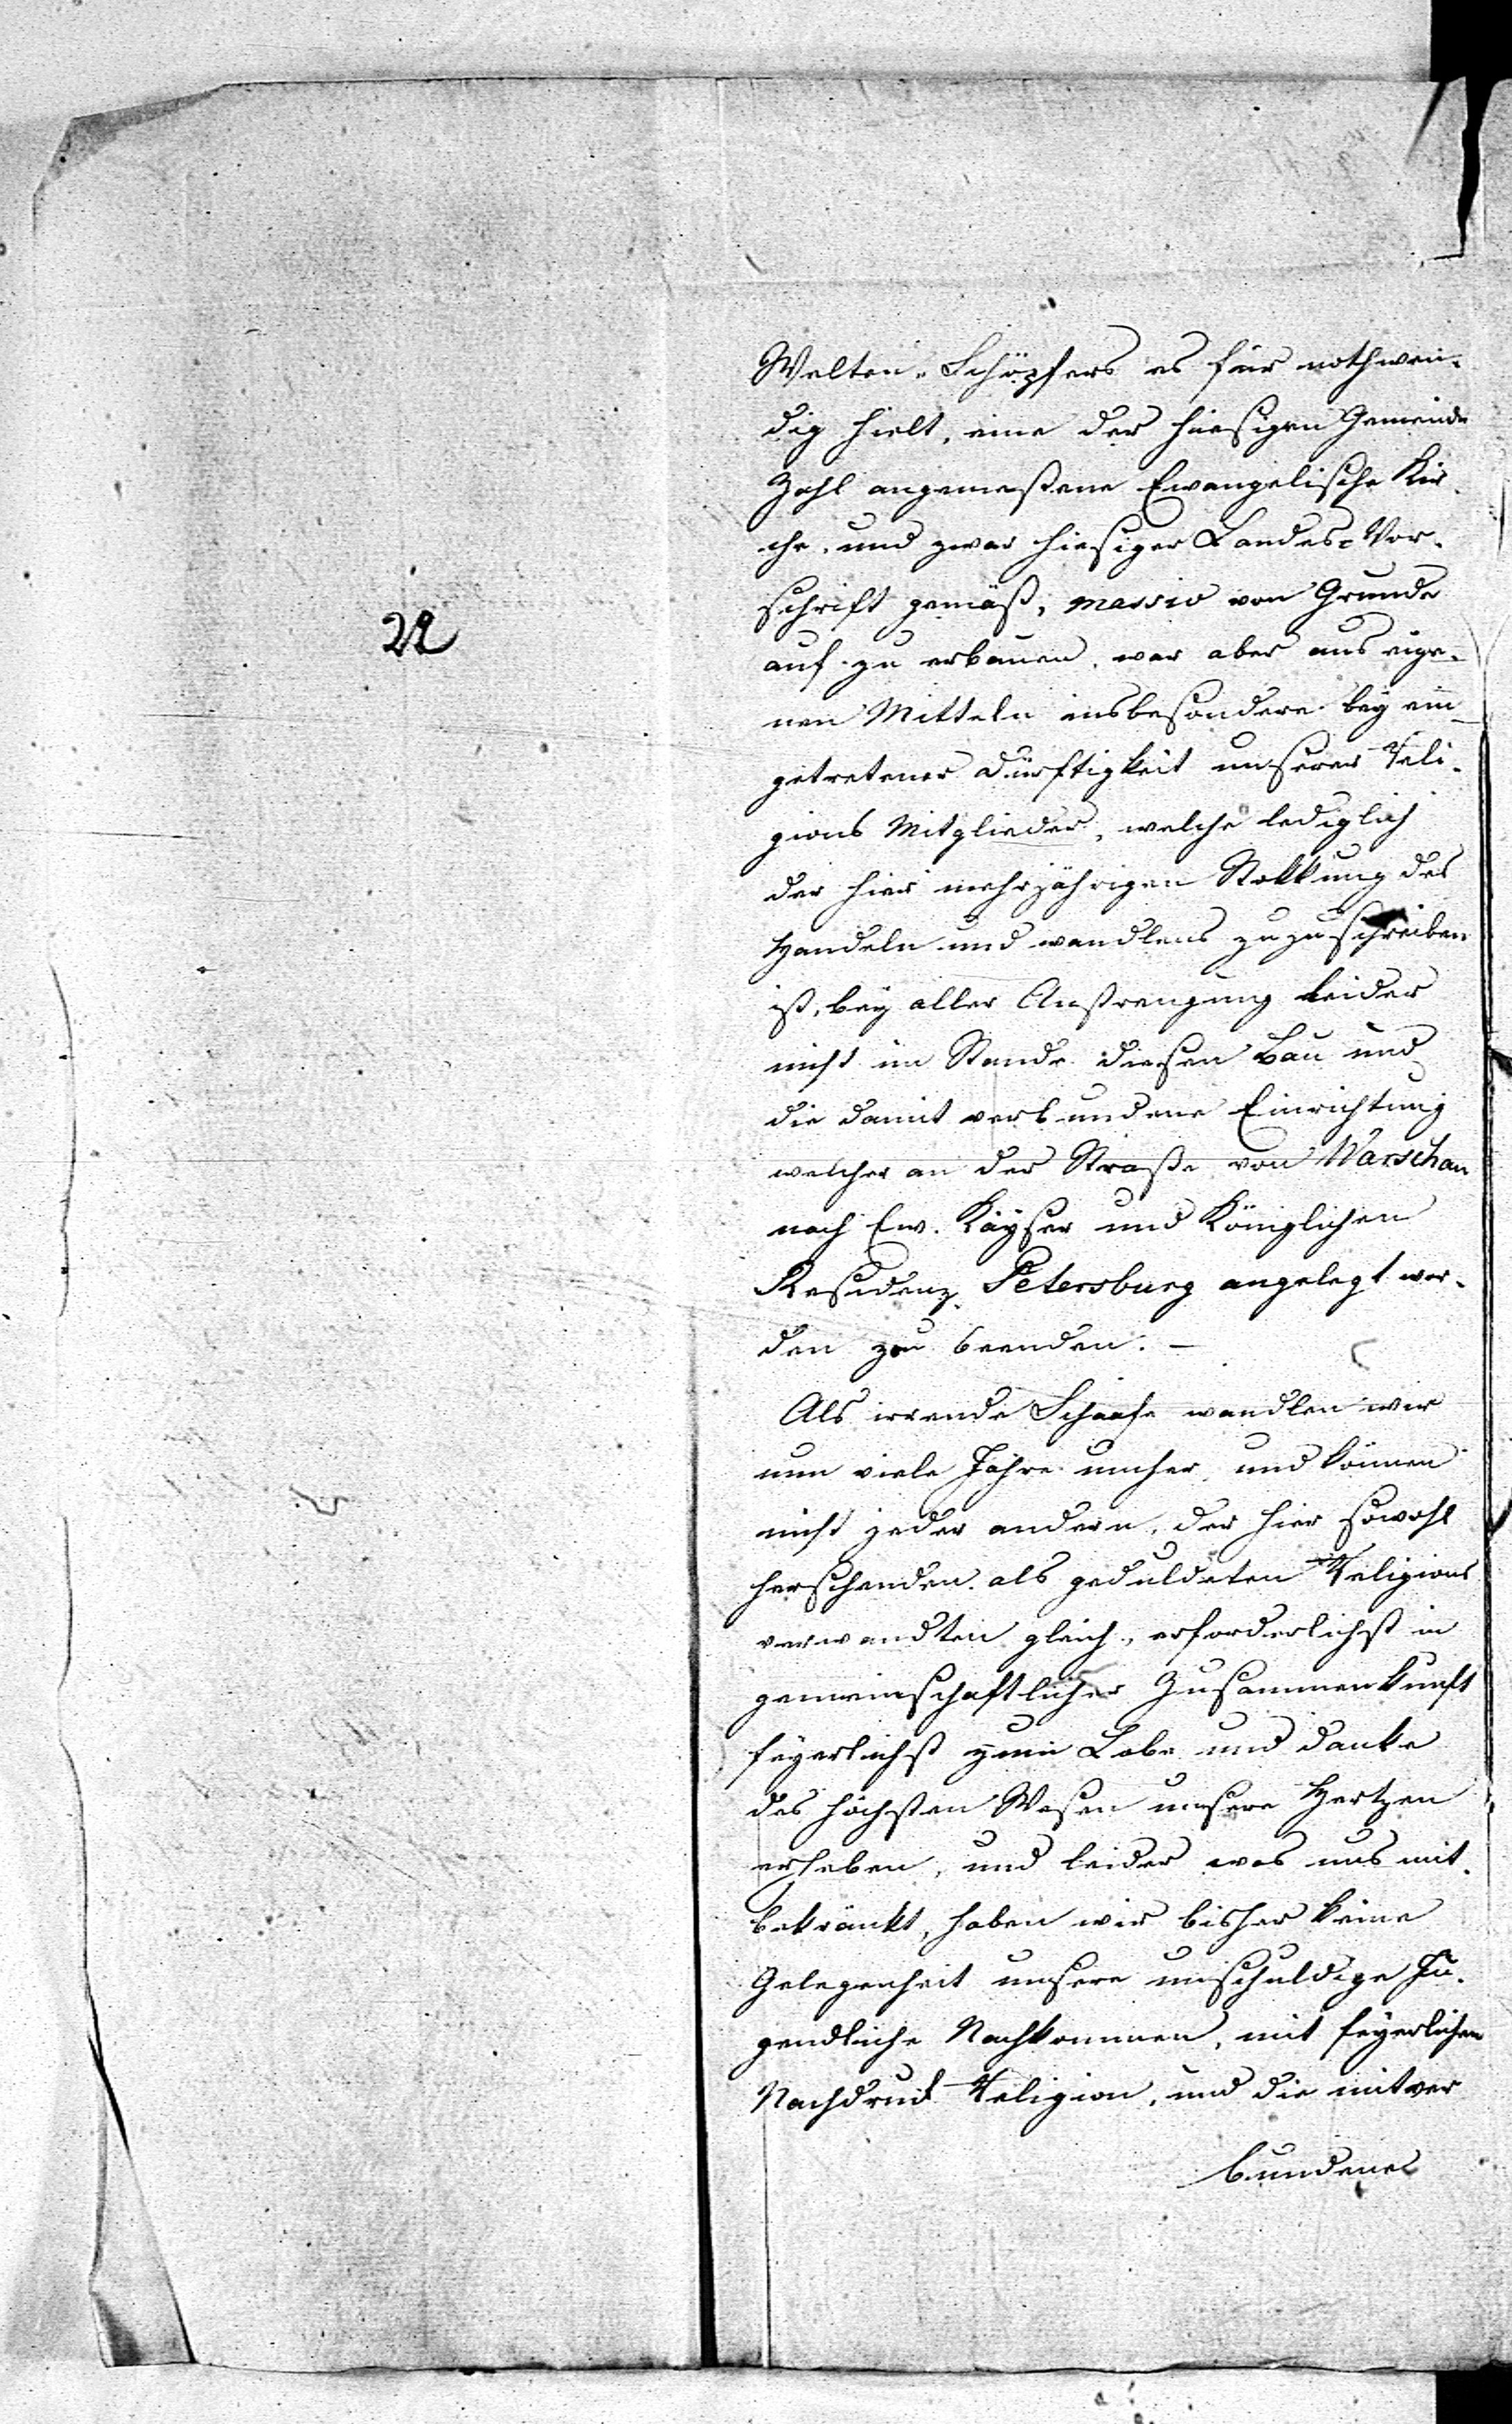 Welten-Schöpfers es für nothwen-
dig hielt, eine der hiesigen Gemeinde
Zahl angemeßene Ewangelische Kir-
che, und zwar hiesiger Landes-Vor-
schrift gemäß, massiv von Grunde
auf zu erbauen, war aber aus eige-
nen Mitteln insbesondere bey ein-
getretener Dürftigkeit unserer Reli-
gions Mitglieder, welche lediglich
der hier mehrjährigen Stokkung des
Handeln und wandlens zuzuschreiben
ist, bey aller Anstrengung leider
nicht im Stande diesen Bau und
die damit verbundene Einrichtung
welcher an der Straße von Warschau
nach Ew. Kayser und Königlichen
Residenz Petersburg angelegt wor-
den zu beenden. —
Als irrende Schaafe wandlen wir
nun viele Jahre umher, und können
nicht jeder andern, der hier sowohl
herschenden als geduldeten Religions
verwandten gleich, erforderlichst in
gemeinschaftlicher Zusammenkunft
feyerlichst zum Lobe und Danke
des höchsten Wesen unsere Hertzen
erheben, und leider was uns mit
bekränkt, haben wir bisher keine
Gelegenheit unsere unschuldige Ju-
gendliche Nachkommen, mit feyerlichen
Nachdruck Religion, und die mitver
bundene